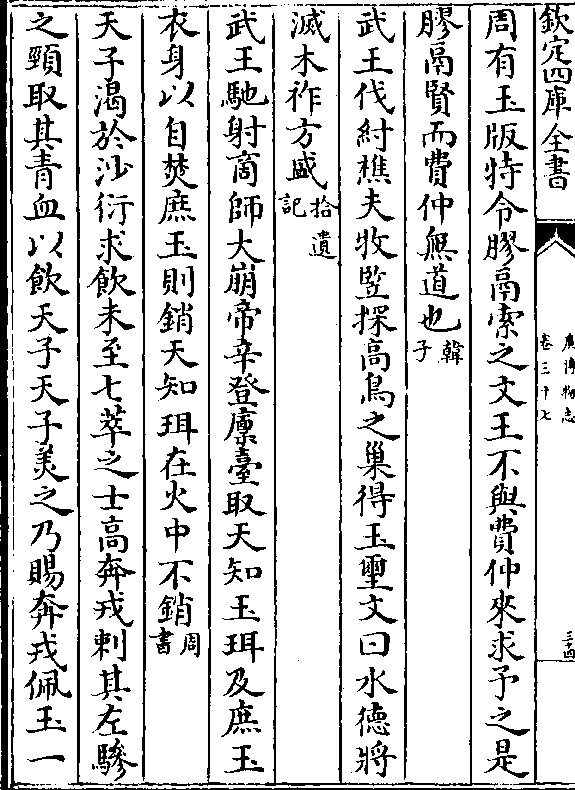 欽定四庫全書
廣博物志
卷三十七
三十四
周有玉版特令膠鬲索之文王不與費仲來求予之是
膠鬲賢而費仲無道也韓子
武王伐紂樵夫牧豎探高鳥之巢得玉璽文曰水德將
滅木祚方盛拾遺記
武王馳射商師大崩帝辛登廩臺取天知玉珥及庶玉
衣身以自焚庶玉則銷天知珥在火中不銷周書
天子渴於沙衍求飲未至七萃之士高奔戎刺其左驂
之頸取其青血以飲天子天子美之乃賜奔戎佩玉一